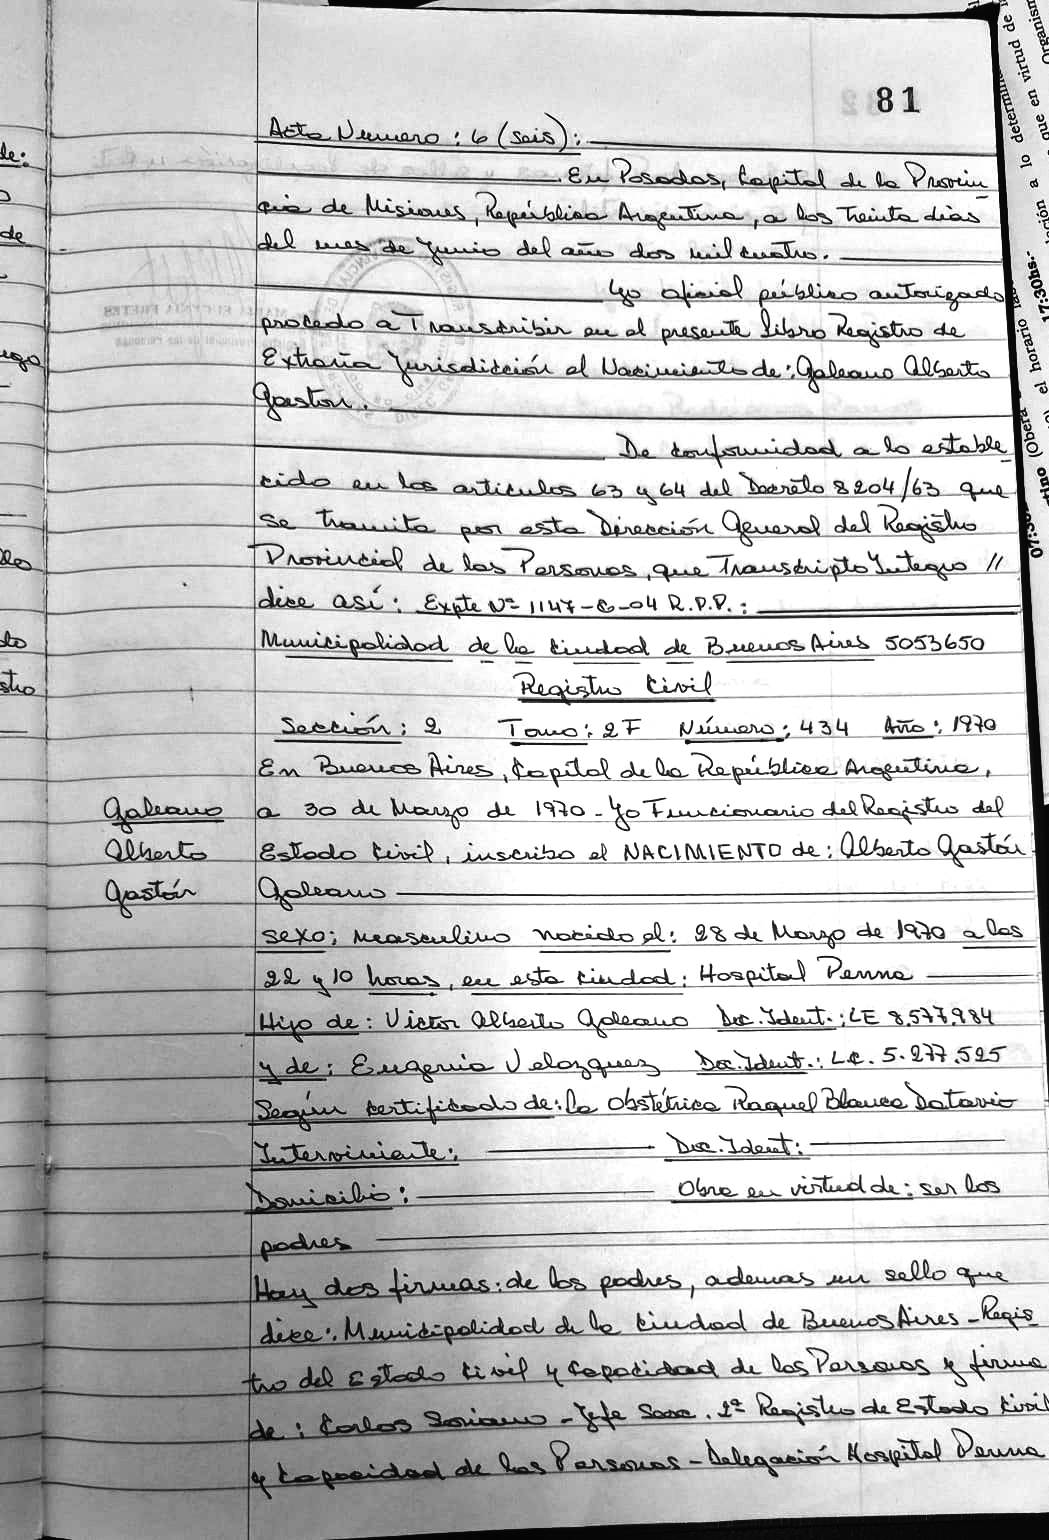 81
Acta Numero: 6 (seis):
En Posadas, Capital de la Provin
cia de Misiones, República Argentina, a los treinta dias
del mes de Junio del año dos mil cuatro.
Yo oficial público autorizado
procedo a Transcribir en el presente Libro Registro de
Extraña Jurisdicción el Nacimiento de: Galeano Alberto
Gaston.
De conformidad a lo estable
cido en los articulos 63 y 64 del Decreto 8204/63 que
se tramita por esta Dirección General del Registro
Provincial de las Personas, que Transcripto Integro //
dice así: Expte Nº 1147-G-04 R.P.P.:
Municipalidad de la Ciudad de Buenos Aires 5053650
Registro Civil
Sección: 2 Tomo: 2F Número: 434 Año: 1970
En Buenos Aires, Capital de la República Argentina,
Galeano
Alberto
Gastón
a 30 de Marzo de 1970 - Yo Funcionario del Registro del
Estado Civil, inscribo el NACIMIENTO de: Alberto Gastón
Galeano
sexo: masculino nacido el: 28 de Marzo de 1970 a las
22 y 10 horas, en esta ciudad: Hospital Penna
Hijo de: Victor Alberto Galeano Doc. Ident.: LE 8.577.984
y de: Eugenia Velazquez Doc. Ident.: L.C. 5.277.525
Según certificado de: la Obstétrica Raquel Blanca Datavio
Interviniente: Doc. Ident:
Domicilio: Obra en virtud de: ser los
padres
Hay dos firmas: de los padres, ademas un sello que
dice: Municipalidad de la Ciudad de Buenos Aires - Regis
tro del Estado Civil y Capacidad de las Personas y firma
de: Carlos Soriano - Jefe Secc. 2ª Registro de Estado Civil
y Capacidad de las Personas - Delegación Hospital Penna